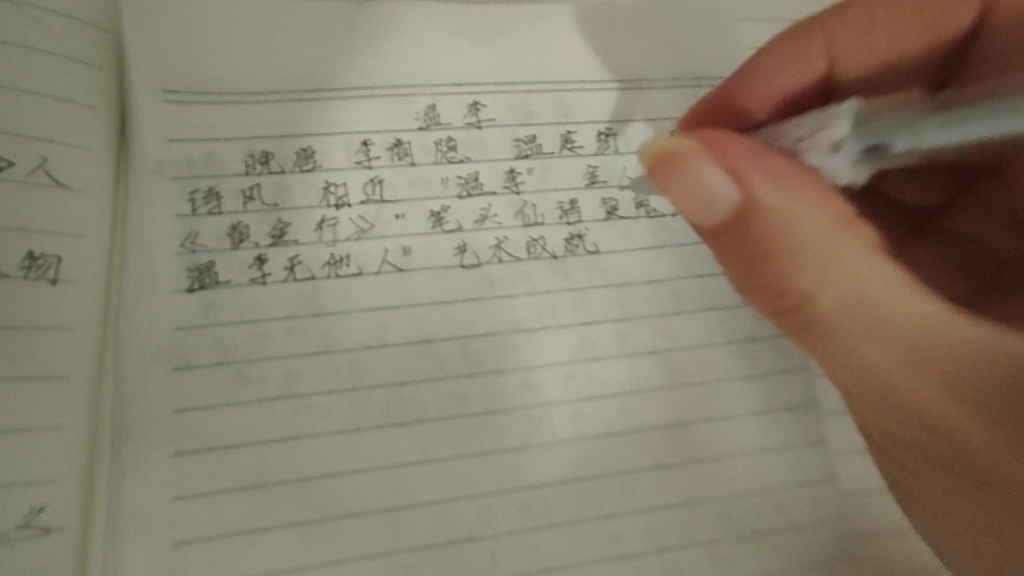 温李
晚唐 李商隐、温庭筠
诗风 相近 "温李" 金
《黄金行》"笔头仙语复
温李无他人" 艺术成就
人
物
之